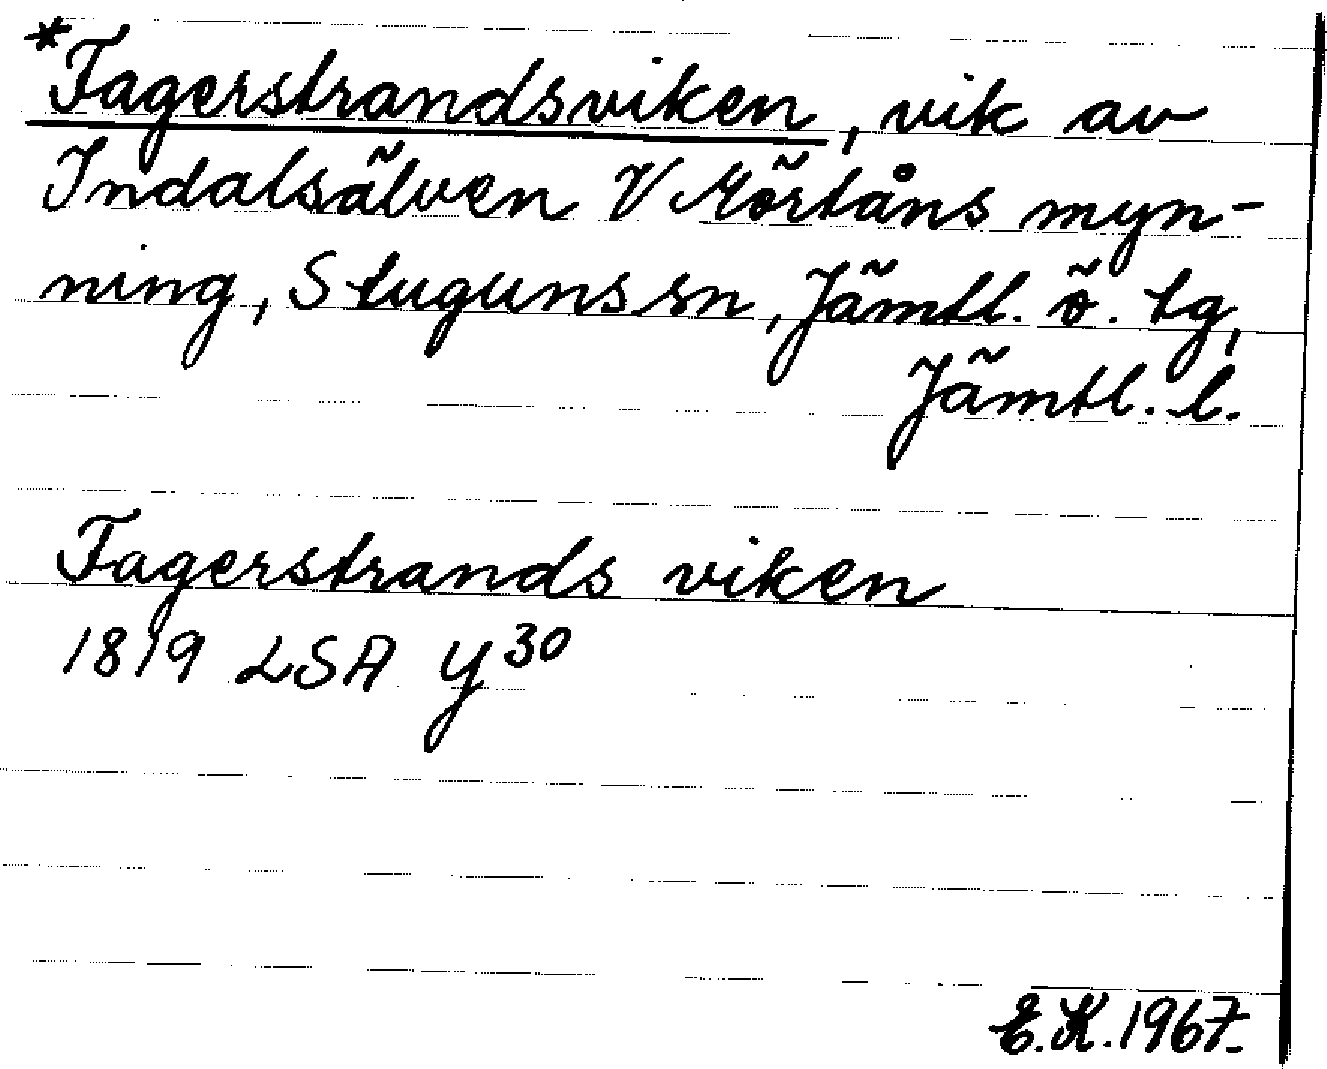 *Fagerstrandsviken, vik av
Indalsälven V Mörtåns myn-
ning, Stuguns sn, Jämtl. ö. tg,
Jämtl. l.
Fagerstrands viken
1819 LSA y³⁰
E.K. 1967.